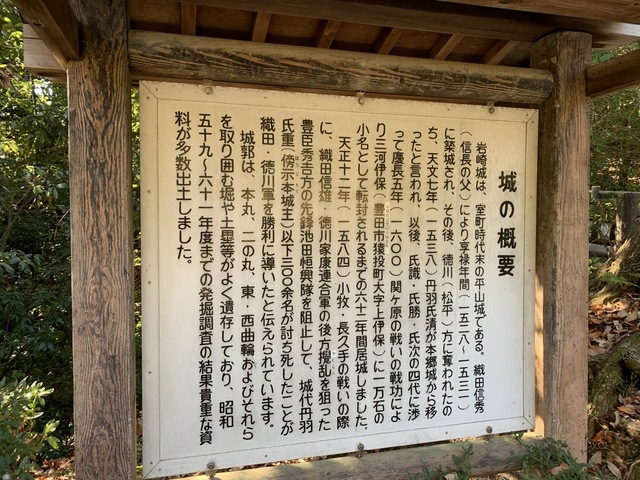 城の概要
岩崎城は、室町時代末の平山城である。織田信秀
（信長の父）により享禄年間（一五二八〜一五三一）
に築城され、その後、徳川（松平）方に奪われたの
ち、天文七年（一五三八）丹羽氏清が本郷城から移
ったと言われ、以後、氏識・氏勝・氏次の四代に渉
って慶長五年（一六〇〇）関ヶ原の戦いの戦功によ
り三河伊保（豊田市猿投町大字上伊保）に一万石の
小名として転封されるまでの六十二年間居城しました。
天正十二年（一五八四）小牧・長久手の戦いの際
に、織田信雄、徳川家康連合軍の後方撹乱を狙った
豊臣秀吉方の先鋒池田恒興隊を阻止して、城代丹羽
氏重（傍示本城主）以下三〇〇余名が討ち死したことが
織田・徳川軍を勝利に導いたと伝えられています。
城郭は、本丸、二の丸、東・西曲輪およびそれら
を取り囲む堀や土塁等がよく遺存しており、昭和
五十九〜六十一年度までの発掘調査の結果貴重な資
料が多数出土しました。